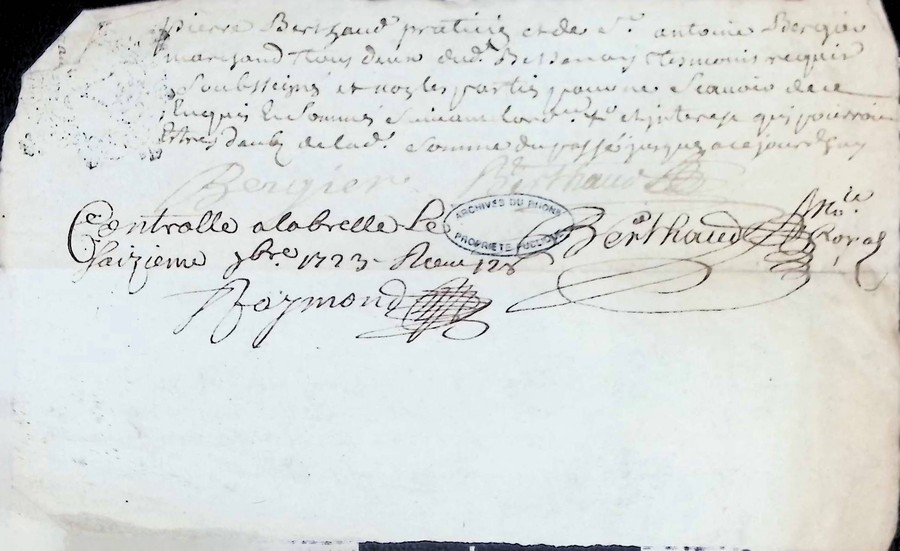 pierre Berthaud praticien et de Sr. antoine Bergier
marchand tous deux dud. Bessenay tesmoins requis
Soubssignés et non les parties pour ne Scavoir de ce
Enquis Et Sommés Suivant lord.ce et interest qui pourroient
Estre deubz de lad. Somme du passé jusques a ce jourdhuy
Bergier Berthaud
Controllé alabrelle Le Berthaud No.re
Saizieme 9bre 1723 Receu 12s Royal
Raymond
ARCHIVES DU RHONE
PROPRIÉTÉ PUBLIQUE